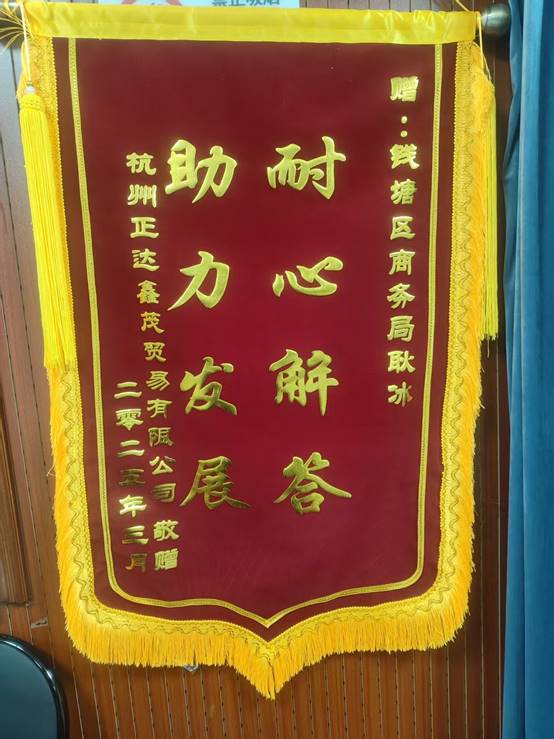 禁止吸烟
赠：钱塘区商务局耿冰
耐心解答
助力发展
杭州正达鑫茂贸易有限公司 敬赠
二零二五年三月